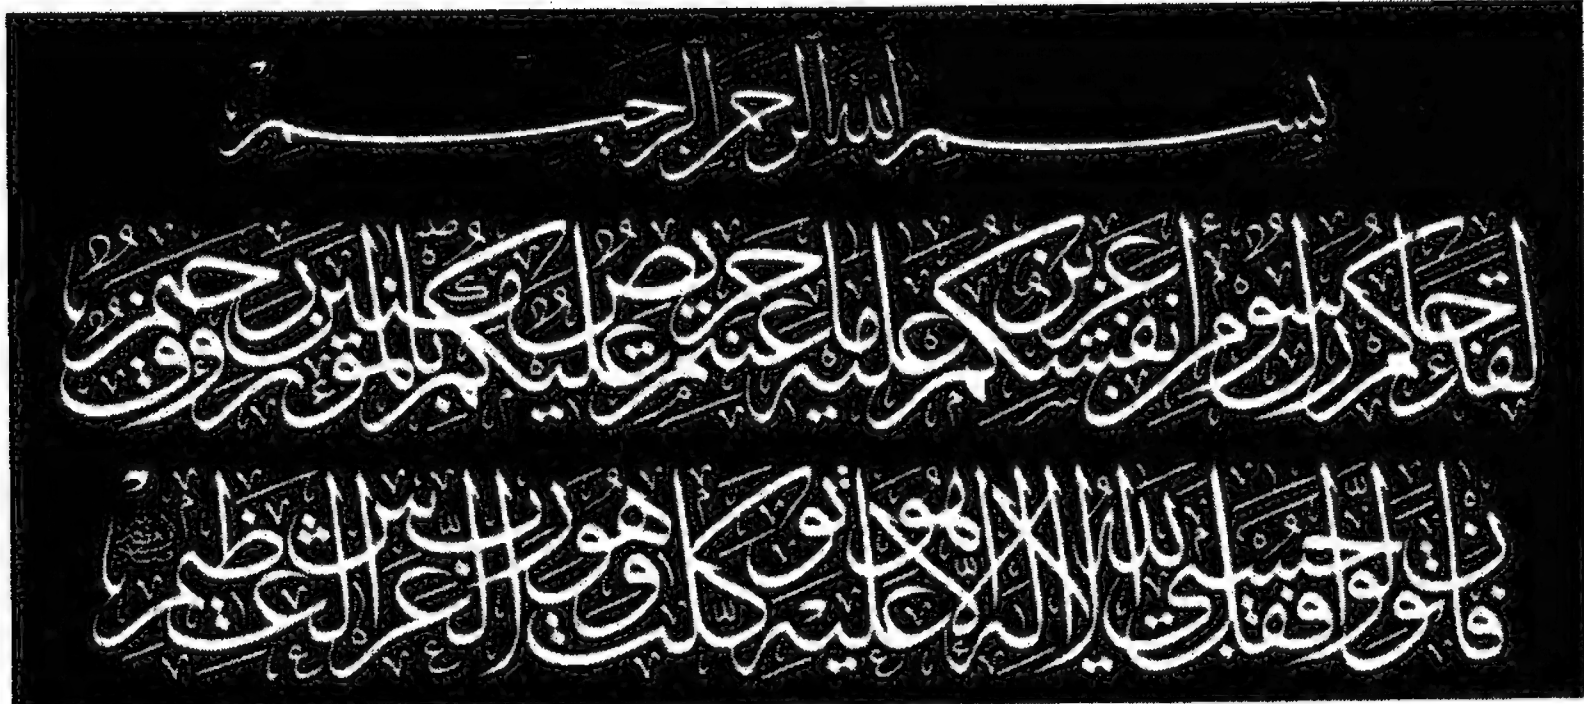 بسم الله الرحمن الرحيم
لقد جاءكم رسول من أنفسكم عزيز عليه ما عنتم حريص عليكم بالمؤمنين رؤوف رحيم
فإن تولوا فقل حسبي الله لا إله إلا هو عليه توكلت وهو رب العرش العظيم